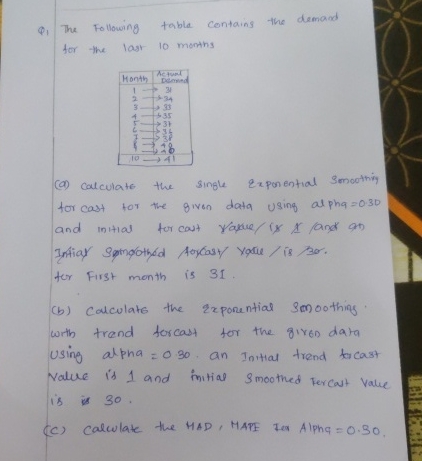 Q1 The Following table contains the demand
for the last 10 months
Month Actual Demand
1 → 31
2 → 34
3 → 33
4 → 35
5 → 37
6 →
7 →
8 → 40
9 → 40
10 → 41
(a) calculate the single Exponential Smoothing
forcast for the given data using alpha = 0.30
and initial forcast
for First month is 31.
(b) Calculate the Exponential Smoothing
with trend forcast for the given data
using alpha = 0.30. an Initial trend forcast
value is 1 and initial Smoothed Forcast Value
is 30.
(c) calculate the MAD, MAPE for Alpha = 0.30.